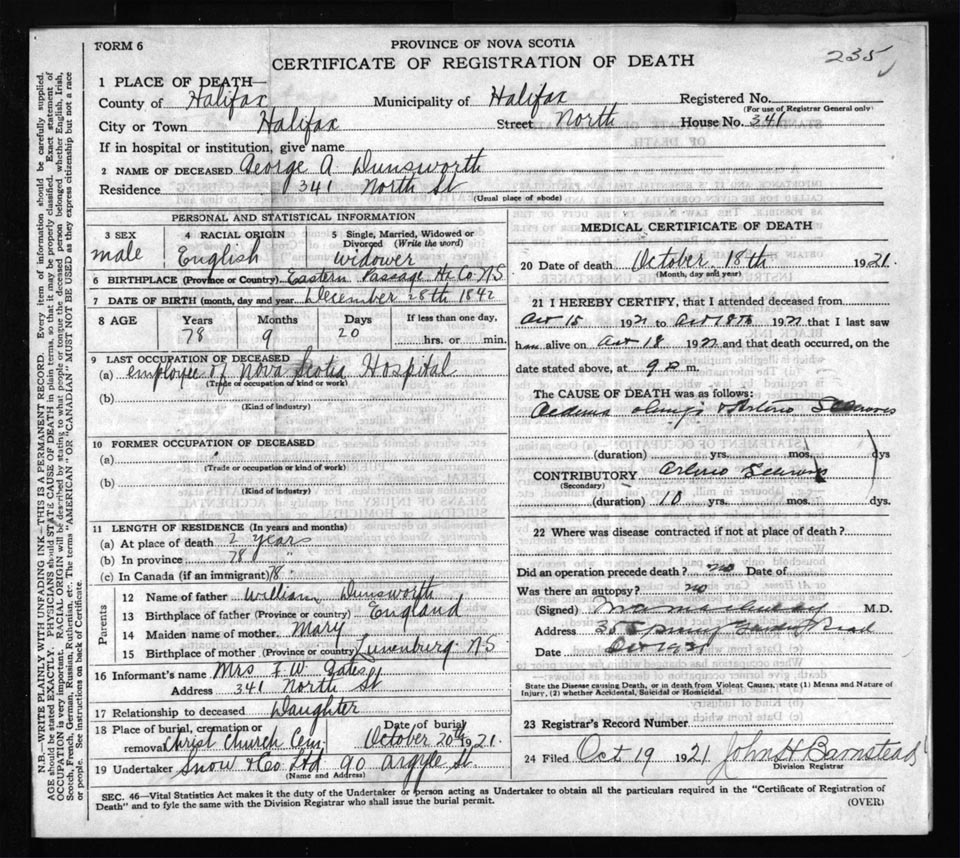 FORM 6
PROVINCE OF NOVA SCOTIA
235
CERTIFICATE OF REGISTRATION OF DEATH
1 PLACE OF DEATH—
County of Halifax Municipality of Halifax Registered No.
(For use of Registrar General only)
City or Town Halifax Street North House No. 341
If in hospital or institution, give name
2 NAME OF DECEASED George A Dunsworth
Residence 341 North St
(Usual place of abode)
PERSONAL AND STATISTICAL INFORMATION
3 SEX 4 RACIAL ORIGIN 5 Single, Married, Widowed or Divorced (Write the word)
male English widower
6 BIRTHPLACE (Province or Country) Eastern Passage Hx Co NS
7 DATE OF BIRTH (month, day and year) December 28th 1842
8 AGE Years Months Days If less than one day,
78 9 20 hrs. or min.
9 LAST OCCUPATION OF DECEASED
(a) employee of Nova Scotia Hospital
(Trade or occupation or kind of work)
(b)
(Kind of industry)
10 FORMER OCCUPATION OF DECEASED
(a)
(Trade or occupation or kind of work)
(b)
(Kind of industry)
11 LENGTH OF RESIDENCE (In years and months)
(a) At place of death 2 years
(b) In province 78 "
(c) In Canada (if an immigrant) 78
Parents
12 Name of father William Dunsworth
13 Birthplace of father (Province or country) England
14 Maiden name of mother Mary
15 Birthplace of mother (Province or country) Lunenburg NS
16 Informant's name Mrs F. W. Gates
Address 341 North St
17 Relationship to deceased Daughter
18 Place of burial, cremation or removal Christ Church Cem Date of burial October 20th 1921.
19 Undertaker Snow & Co Ltd 90 Argyle St.
(Name and Address)
MEDICAL CERTIFICATE OF DEATH
20 Date of death October 18th 1921.
(Month, day and year)
21 I HEREBY CERTIFY, that I attended deceased from
Oct 15 1921 to Oct 18th 1921 that I last saw
him alive on Oct 18 1921 and that death occurred, on the
date stated above, at 9 P m.
The CAUSE OF DEATH was as follows:
Oedema Lungs
(duration) yrs. mos. dys
CONTRIBUTORY Arterio
(Secondary)
(duration) 10 yrs. mos. dys.
22 Where was disease contracted if not at place of death?
Did an operation precede death? no Date of
Was there an autopsy? no
(Signed) M.D.
Address 35 Spring Garden Road
Date Oct 1921
State the Disease causing Death, or in death from Violent Causes, state (1) Means and Nature of Injury, (2) whether Accidental, Suicidal or Homicidal.
23 Registrar's Record Number
24 Filed Oct 19 1921 John H Barnstead
Division Registrar
SEC. 46—Vital Statistics Act makes it the duty of the Undertaker or person acting as Undertaker to obtain all the particulars required in the "Certificate of Registration of
Death" and to fyle the same with the Division Registrar who shall issue the burial permit.
(OVER)
N.B.—WRITE PLAINLY WITH UNFADING INK—THIS IS A PERMANENT RECORD. Every item of information should be carefully supplied.
AGE should be stated EXACTLY. PHYSICIANS should STATE CAUSE OF DEATH in plain terms, so that it may be properly classified. Exact statement of
OCCUPATION is very important. RACIAL ORIGIN will be described by stating to what people or tongue the deceased person belonged whether English, Irish,
Scotch, French, German, Russian, Ruthenian, etc. The terms "AMERICAN" or "CANADIAN" MUST NOT BE USED as they express citizenship but not a race
or people. See instructions on back of Certificate.